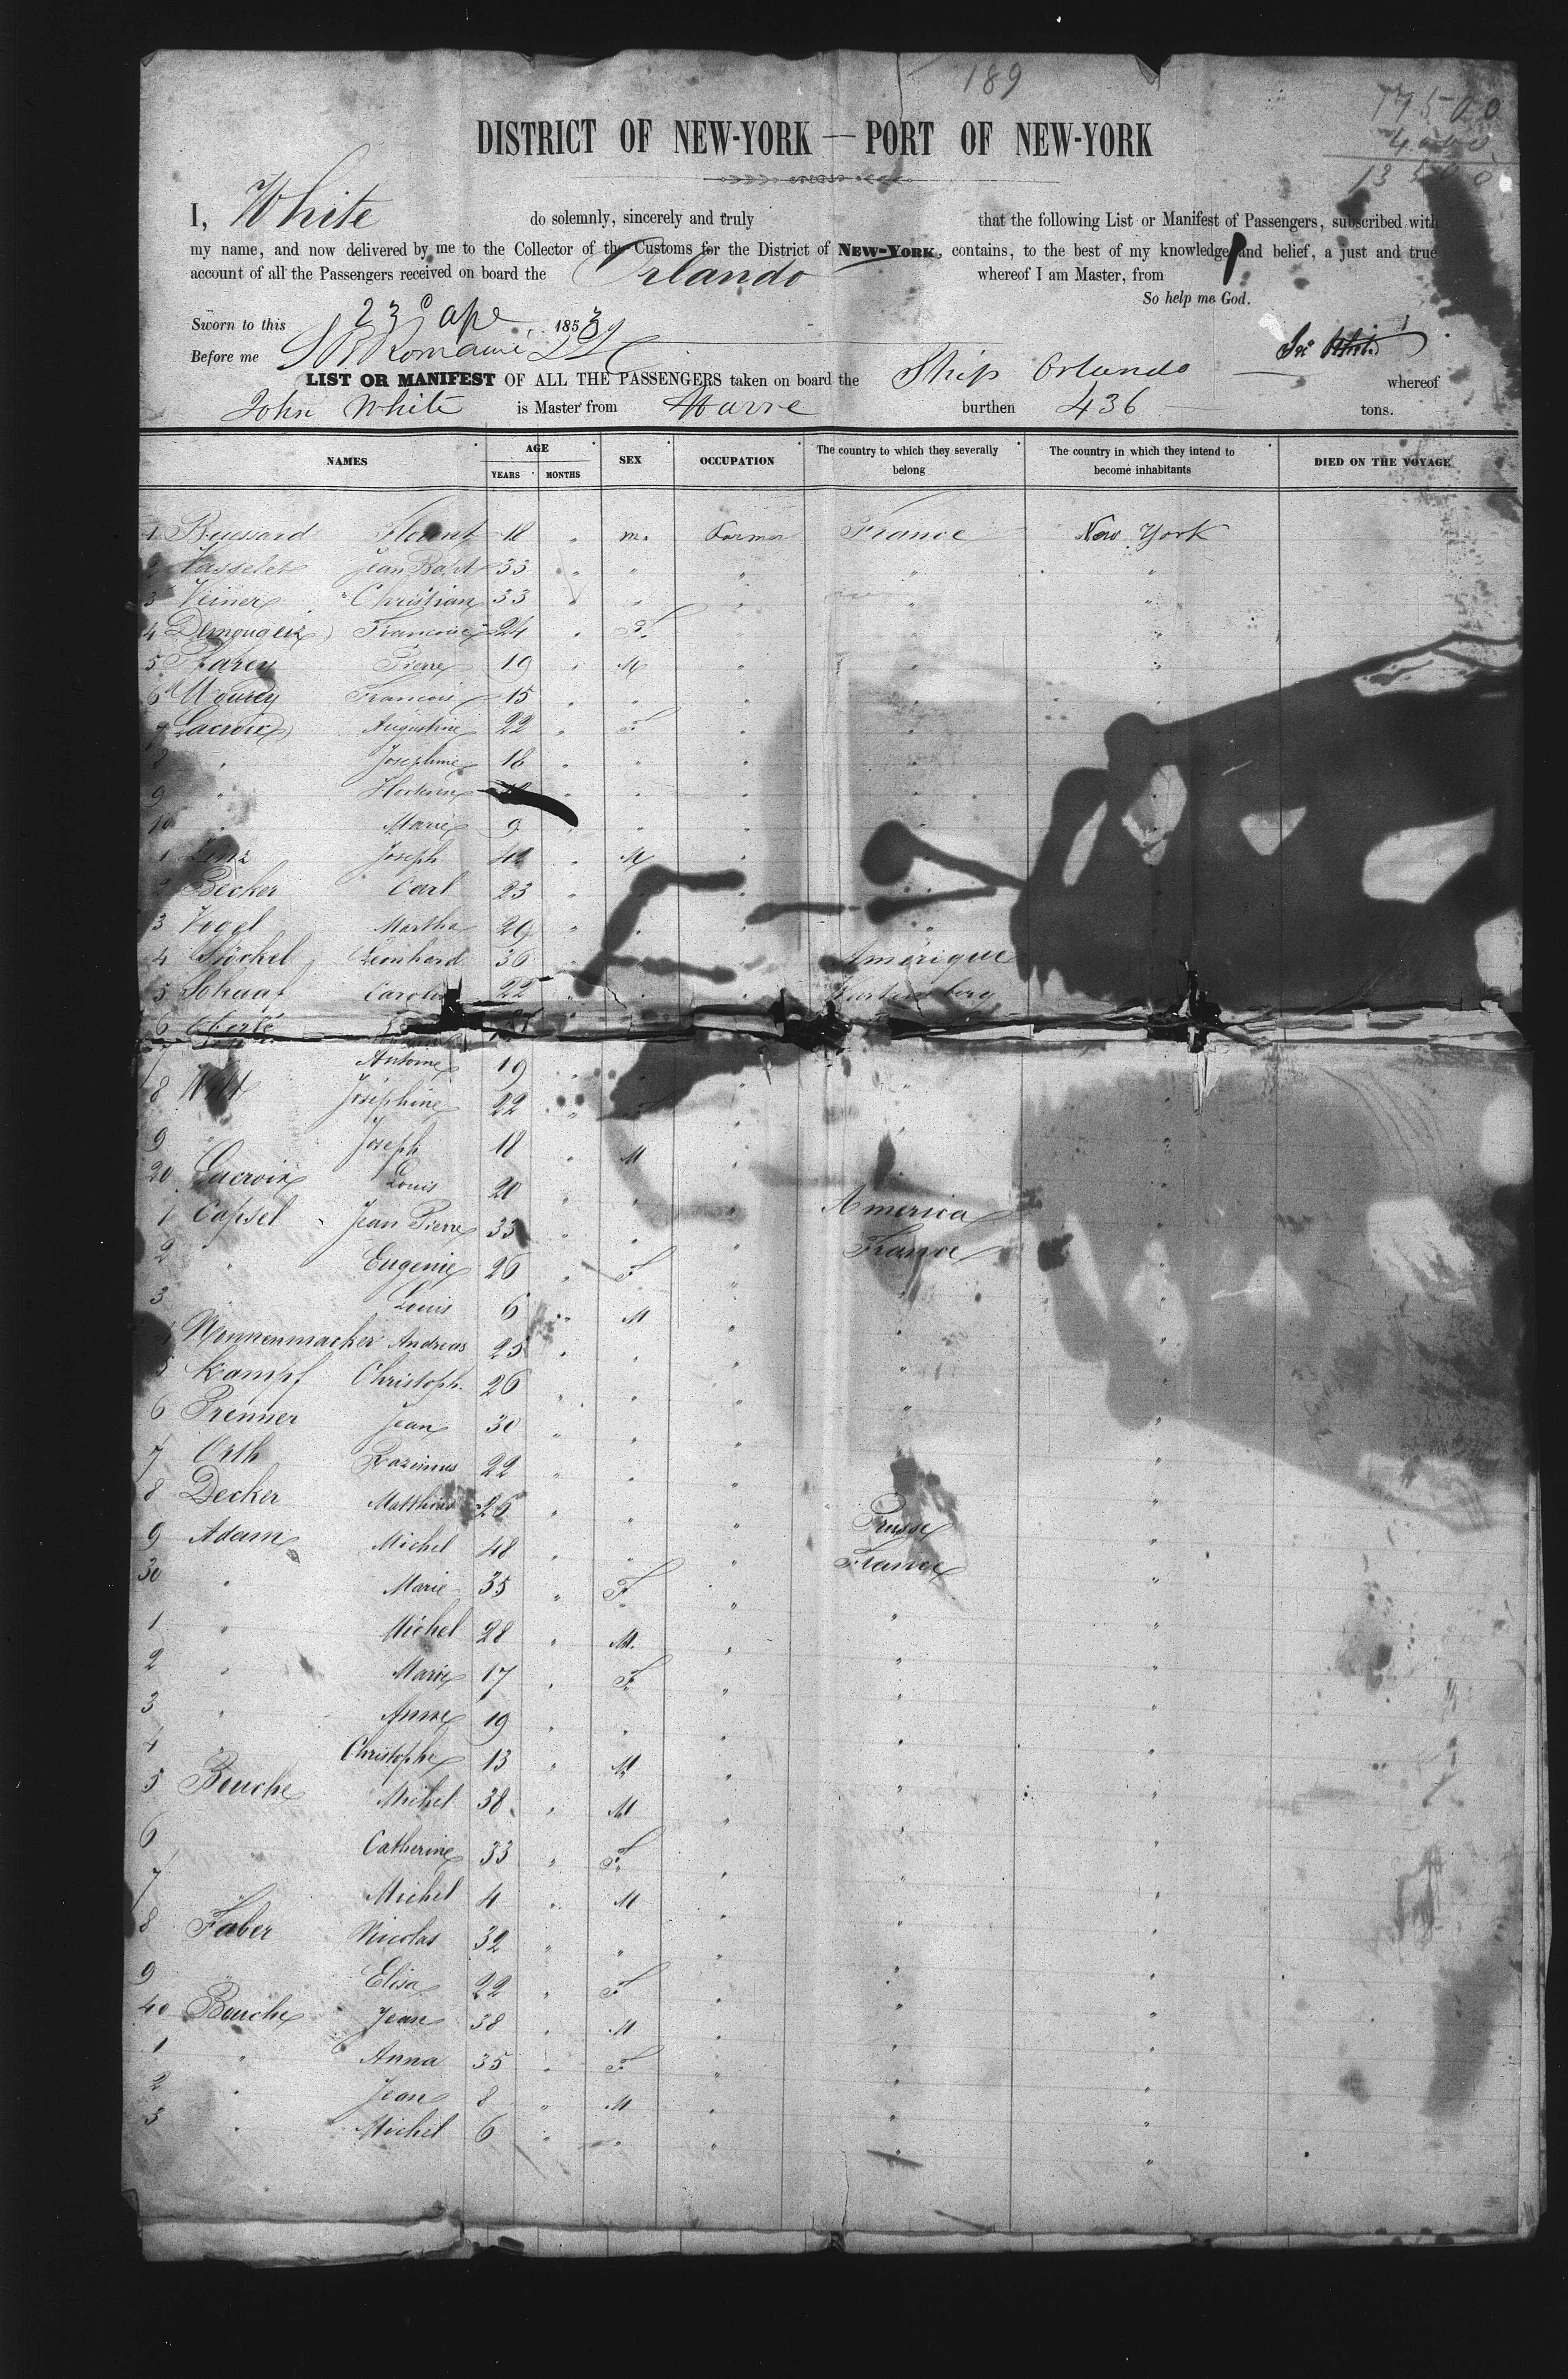 189
17500
4000
13500
DISTRICT OF NEW-YORK — PORT OF NEW-YORK
I, White do solemnly, sincerely and truly that the following List or Manifest of Passengers, subscribed with
my name, and now delivered by me to the Collector of the Customs for the District of NEW-YORK, contains, to the best of my knowledge and belief, a just and true
account of all the Passengers received on board the Orlando whereof I am Master, from
So help me God.
Sworn to this 23 1853
Before me
LIST OR MANIFEST OF ALL THE PASSENGERS taken on board the Ship Orlando whereof
John White is Master from Havre burthen 436 tons.
NAMES AGE YEARS MONTHS SEX OCCUPATION The country to which they severally belong The country in which they intend to become inhabitants DIED ON THE VOYAGE
1 Florent 18 " m. Farmer France New York
2 Jean Bapt 33 " " " " "
3 Veiner Christian 33 " " " " "
4 24 " F. " " "
5 Pierre 19 " M " " "
6 Francois 15 " " " " "
7 Lacroix Augustine 22 " F " "
8 " Josephine 16 " " " "
9 " " " " "
10 " Marie 9 " " " "
1 Joseph " M "
2 Becker Carl 23 " "
3 Vogel Martha 29 " " " "
4 Stöckel Leonhard 36 " Amérique
5 Schaaf 22 " " "
6
7 Antoine 19 " "
8 Josephine 22 " " "
9 " Joseph 18 " M " "
20 Lacroix Louis 20 " " " America
1 Capsel Jean Pierre 33 " " " France
2 " Eugenie 26 " F " "
3 Louis 6 " M " "
4 Wonnenmacher Andreas 25 " " " "
5 Kampf Christoph. 26 " " " "
6 Prenner Jean 30 " " " "
7 Orth 22 " " "
8 Decker Matthias 26 " " " Prusse "
9 Adam Michel 48 " " " France "
30 " Marie 35 " F. " " "
1 " Michel 28 " M. " " "
2 " Marie 17 " F. " " "
3 " Anne 19 " " " " "
4 " Christophe 13 " M " " "
5 Bouche Michel 38 " M " " "
6 Catherine 33 " F. " " "
7 Michel 4 " M " " "
8 Faber Nicolas 32 " " " " "
9 " Elisa 22 " F " " "
40 Bouche Jean 38 " M " " "
1 " Anna 35 " F " " "
2 " Jean 8 " M " " "
3 " Michel 6 " " " " "